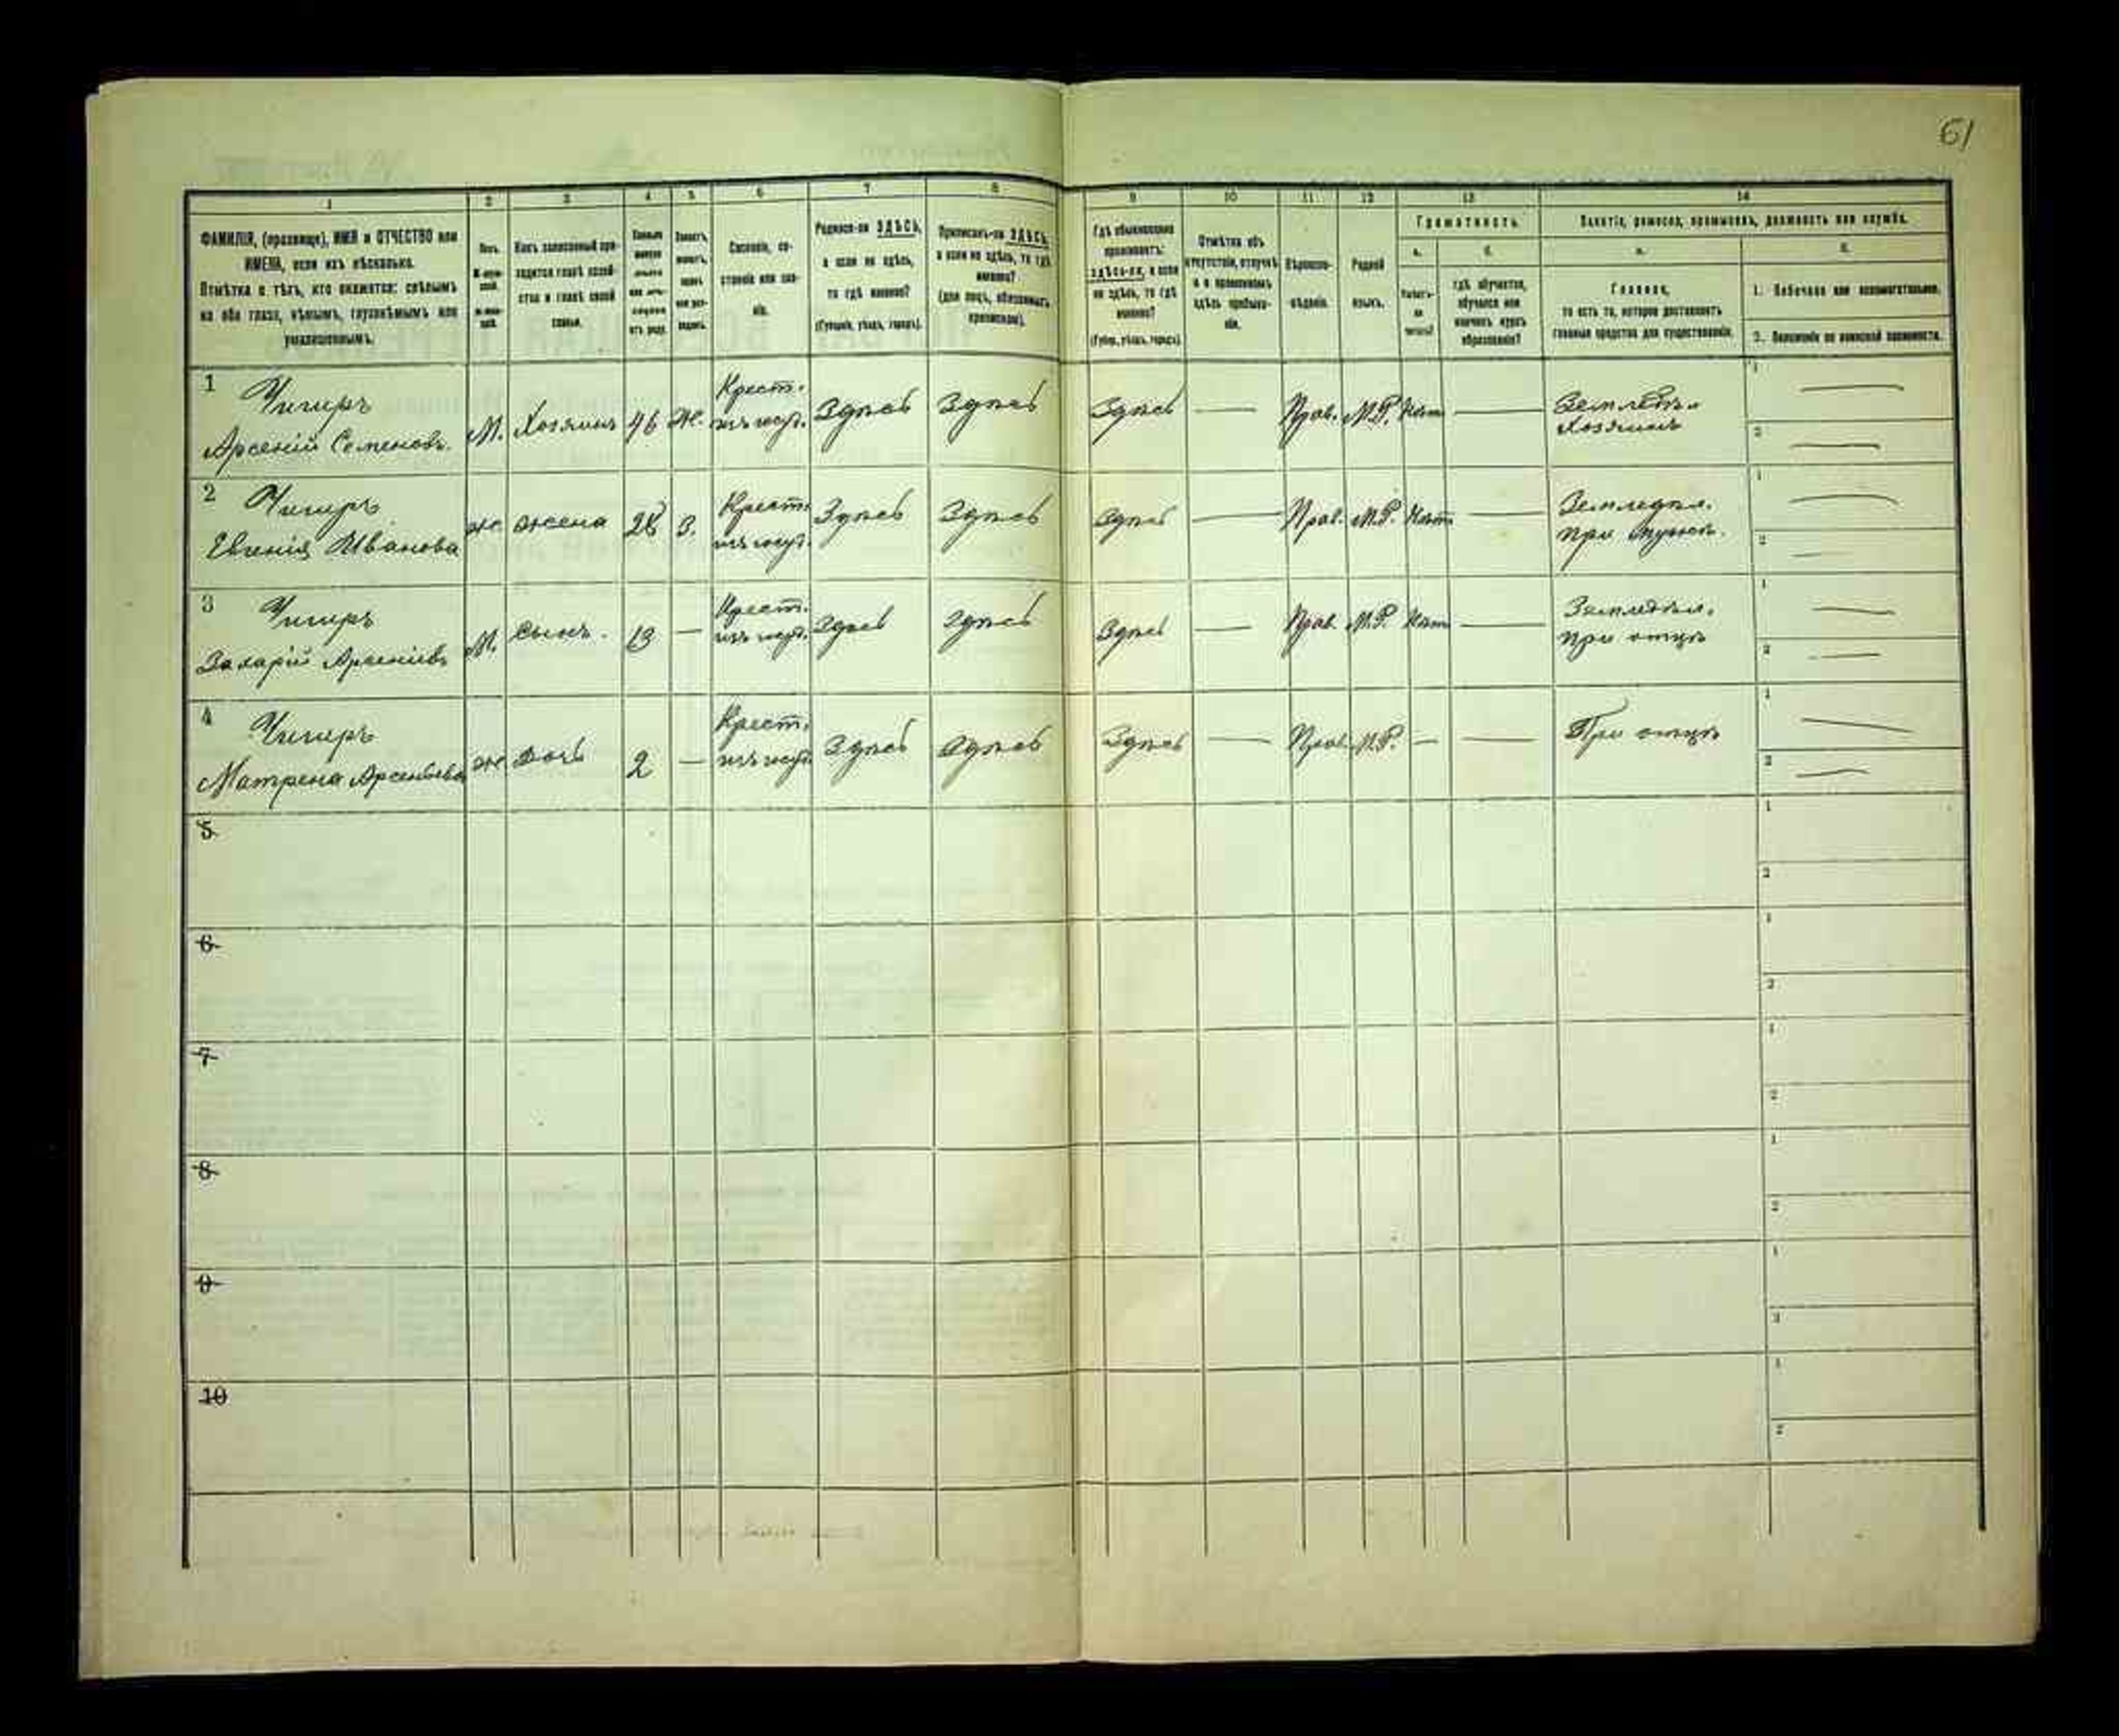 61
1 2 3 4 5 6 7 8 9 10 11 12 13 14
ФАМИЛІЯ, (прозвище), ИМЯ и ОТЧЕСТВО или
ИМЕНА, если ихъ нѣсколько.
Отмѣтка о тѣхъ, кто окажется: слѣпымъ
на оба глаза, нѣмымъ, глухонѣмымъ или
умалишеннымъ.
Полъ.
Какъ записанный при-
ходится главѣ хозяй-
ства и главѣ своей
семьи.
Сословіе, со-
стояніе или зва-
ніе.
Родился-ли ЗДѢСЬ,
а если не здѣсь,
то гдѣ именно?
(Губернія, уѣздъ, городъ).
Приписанъ-ли ЗДѢСЬ,
а если не здѣсь, то гдѣ
именно?
(для лицъ, обязанныхъ
припискою).
Гдѣ обыкновенно
проживаетъ:
здѣсь-ли, а если
не здѣсь, то гдѣ
именно?
(Губер., уѣздъ, городъ).
Отмѣтка объ
отсутствіи, отлучкѣ
и о временномъ
здѣсь пребыва-
ніи.
Вѣроиспо-
вѣданіе.
Родной
языкъ.
Грамотность.
а. б.
Умѣетъ-
ли
читать?
гдѣ обучается,
обучался или
кончилъ курсъ
образованія?
Занятіе, ремесло, промыселъ, должность или служба.
а. б.
Главное,
то есть то, которое доставляетъ
главныя средства для существованія.
1. Побочное или вспомогательное.
2. Положеніе по воинской повинности.
1 Чигирь Крест.
Арсеній Семеновъ. М. Хозяинъ 46 Ж. Здѣсь Здѣсь Здѣсь — Прав. М.Р. Нѣтъ — Земледѣл.
Хозяинъ
1 —
2 —
2 Чигирь Крест.
Евгенія Иванова ж жена 28 З. Здѣсь Здѣсь Здѣсь — Прав. М.Р. Нѣтъ — Земледѣл.
при мужѣ.
1 —
2 —
3 Чигирь Крест.
Захарій Арсеніевъ М. сынъ. 13 — Здѣсь Здѣсь Здѣсь — Прав. М.Р. Нѣтъ — Земледѣл.
при отцѣ
1 —
2 —
4 Чигирь Крест.
Матрена Арсеньева ж дочь 2 — Здѣсь Здѣсь Здѣсь — Прав. М.Р. — — При отцѣ
1 —
2 —
5
1
2
6
1
2
7
1
2
8
1
2
9
1
2
10
1
2